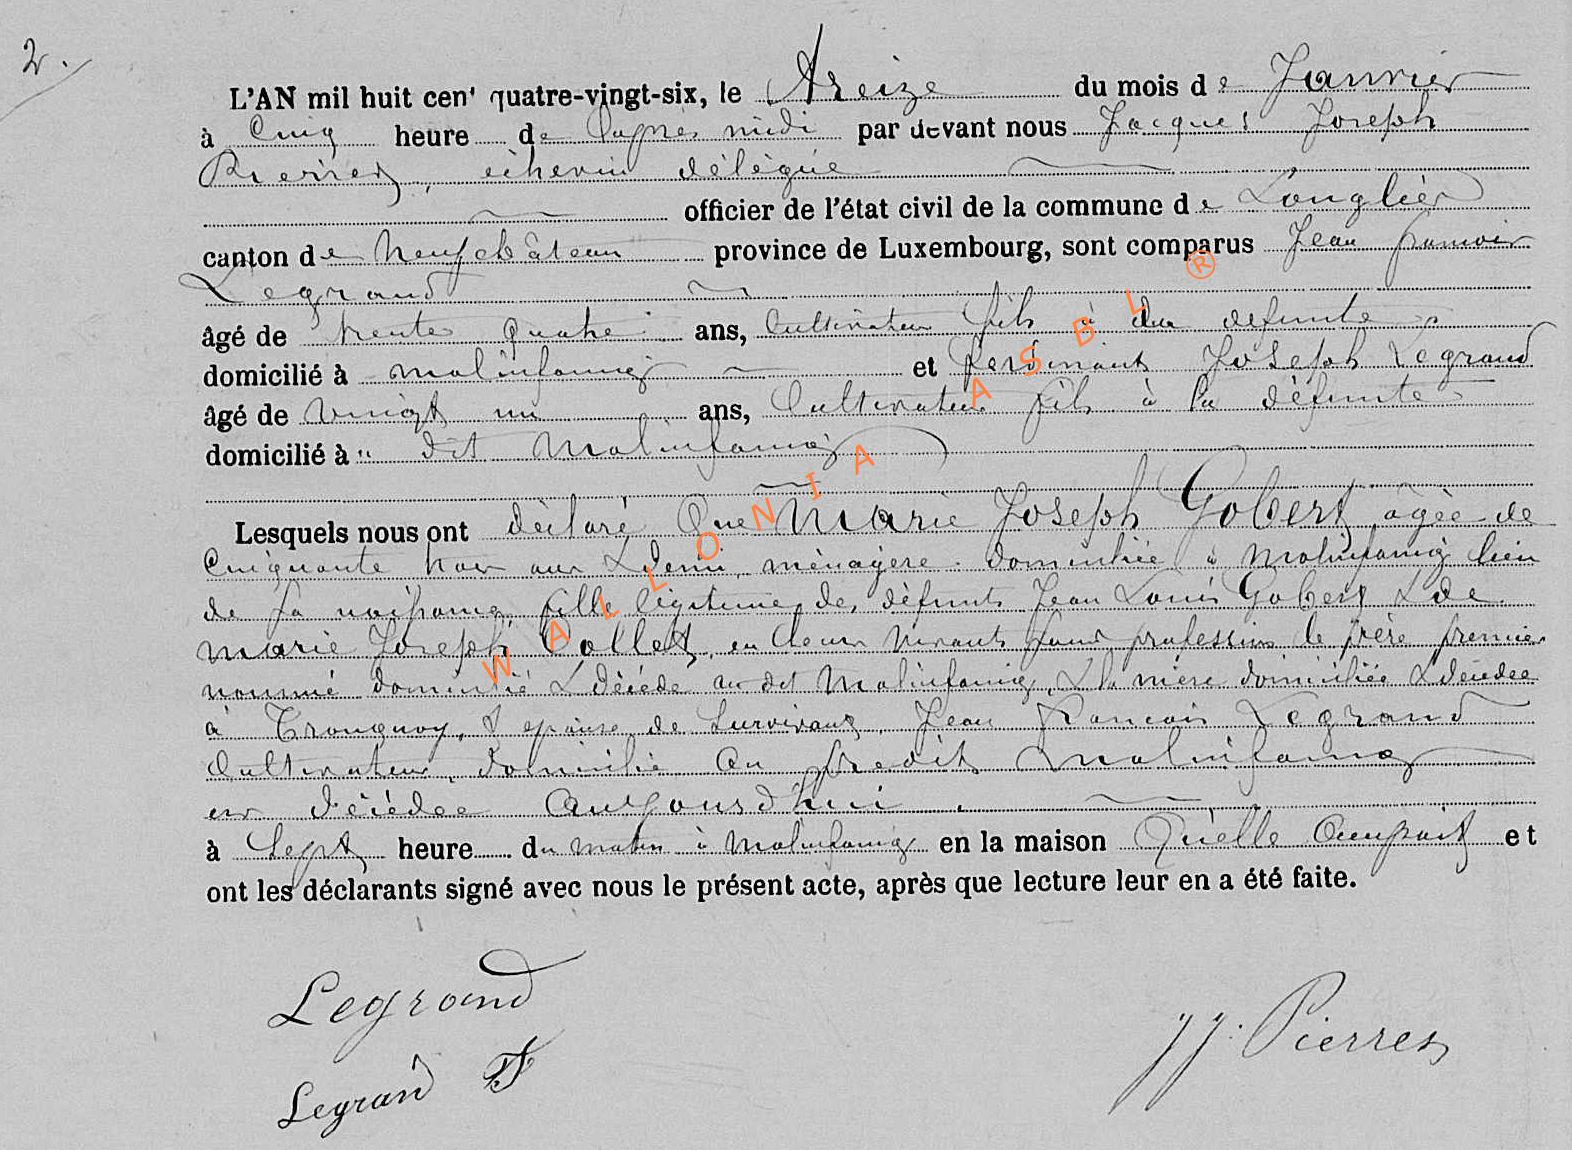 2.
L'AN mil huit cent quatre-vingt-six, le treize du mois de Janvier
à Cinq heure de l'après midi par devant nous Jacques Joseph
Pierret, échevin délégué
officier de l'état civil de la commune de Longlier
canton de Neufchâteau province de Luxembourg, sont comparus Jean francois
Legrand
âgé de trente quatre ans, Cultivateur fils à la defunte
domicilié à molinfaing et ferdinant Joseph Legrand
âgé de vingt un ans, Cultivateur fils à la défunte
domicilié à " dit Molinfaing
Lesquels nous ont déclaré Que Marie Joseph Gobert âgée de
Cinquante trois ans & demi, ménagère domiciliée à Molinfaing lieu
de sa naissance, fille légitime de défunts Jean Louis Gobert & de
marie Joseph Collet, en leur vivants sans profession le père premier
nommé domicilié & décédé au dit Molinfaing, & la mère domiciliée & décédée
à Tronquoy, & epouse de Survivant Jean francois Legrand
Cultivateur, domicilié au predit Molinfaing
est décédée aujourd'hui
à Sept heure du matin à Molinfaing en la maison Qu'elle Occupait et
ont les déclarants signé avec nous le présent acte, après que lecture leur en a été faite.
Legrand
Legrand FJ
JJ. Pierret
WALLONIA ASBL ®